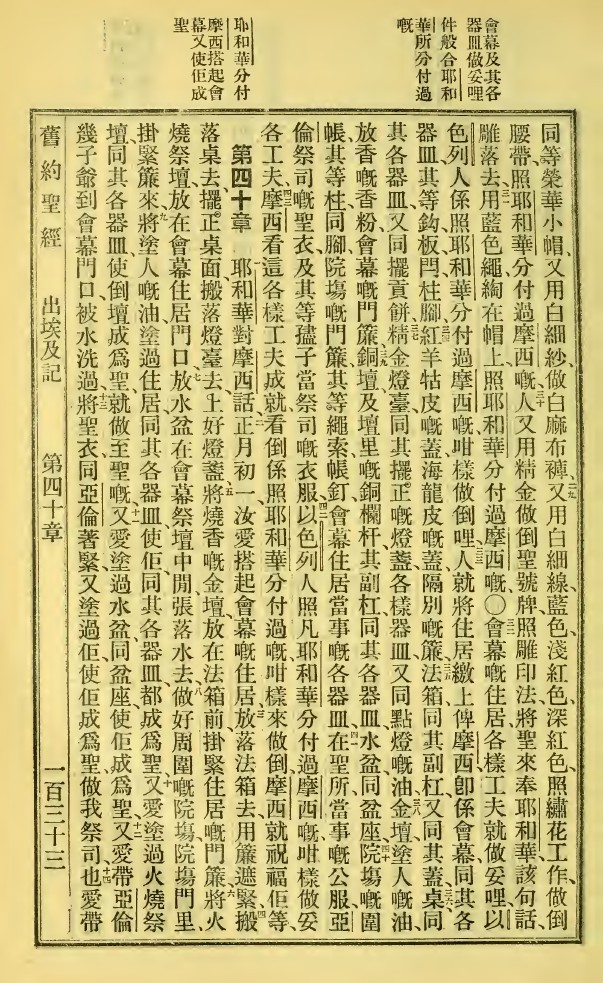 會幕及其各
器皿做妥哩
件般合耶和
華所分付過
嘅
耶和華分付
摩西搭起會
幕又使佢成
聖
同等榮華小帽、又用白細紗做白蔴布褲、二九又用白細線藍色淺紅色、深紅色、照繡花工作做倒
腰帶、照耶和華分付過摩西嘅、三十人又用精金做倒聖號牌、照雕印法將聖來奉耶和華該句話、
雕落去、三一用藍色繩綯在帽上、照耶和華分付過摩西嘅、〇三二會幕嘅住居各樣工夫就做妥哩、以
色列人係照耶和華分付過摩西嘅咁樣做倒哩、三三人就將住居繳上俾摩西、卽係會幕同其各
器皿、其等鈎板閂柱腳、三四紅羊牯皮嘅蓋、海龍皮嘅蓋、隔別嘅簾、三五法箱同其副杠、又同其蓋、三六桌同
其各器皿、又同擺貢餅、三七精金燈臺、同其擺正嘅燈盞、各樣器皿、又同點燈嘅油、三八金壇、塗人嘅油、
放香嘅香粉、會幕嘅門簾、三九銅壇及壇里嘅銅欄杆、其副杠、同其各器皿、水盆同盆座、四十院塲嘅圍
帳、其等柱、同腳、院塲嘅門簾、其等繩索、帳釘、會幕住居當事嘅各器皿、四一在聖所當事嘅公服、亞
倫祭司嘅聖衣、及其等孻子當祭司嘅衣服、四二以色列人照凡耶和華分付過摩西嘅咁樣做妥
各工夫、四三摩西看這各樣工夫成就、看倒係照耶和華分付過嘅咁樣來做倒、摩西就祝福佢等、
第四十章　一耶和華對摩西話、二正月初一、汝愛搭起會幕嘅住居、三放落法箱去、用簾遮緊、四搬
落桌去、擺正桌面、搬落燈臺去、上好燈盞、五將燒香嘅金壇、放在法箱前、掛緊住居嘅門簾、六將火
燒祭壇、放在會幕住居門口、七放水盆在會幕祭壇中間、張落水去、八做好周圍嘅院塲、院塲門里、
掛緊簾來、九將塗人嘅油、塗過住居、同其各器皿、使佢同其各器皿、都成爲聖、十又愛塗過火燒祭
壇、同其各器皿、使倒壇成爲聖、就做至聖嘅、十一又愛塗過水盆、同盆座、使佢成爲聖、十二又愛帶亞倫
幾子爺到會幕門口、被水洗過、十三將聖衣同亞倫著緊、又塗過佢、使佢成爲聖、做我祭司、十四也愛帶
舊約聖經　出埃及記　第四十章　一百三十三